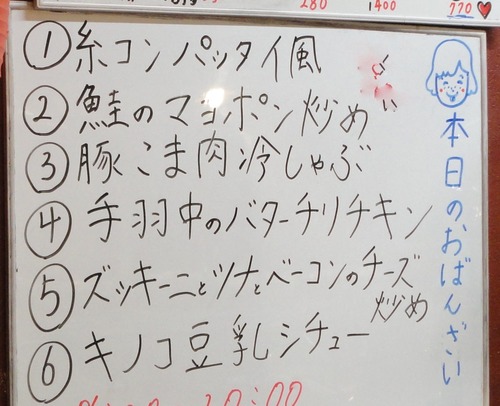 280 1400 770
本日のおばんざい
① 糸コンパッタイ風
② 鮭のマヨポン炒め
③ 豚こま肉冷しゃぶ
④ 手羽中のバターチリチキン
⑤ ズッキーニとツナとベーコンのチーズ
炒め
⑥ キノコ豆乳シチュー